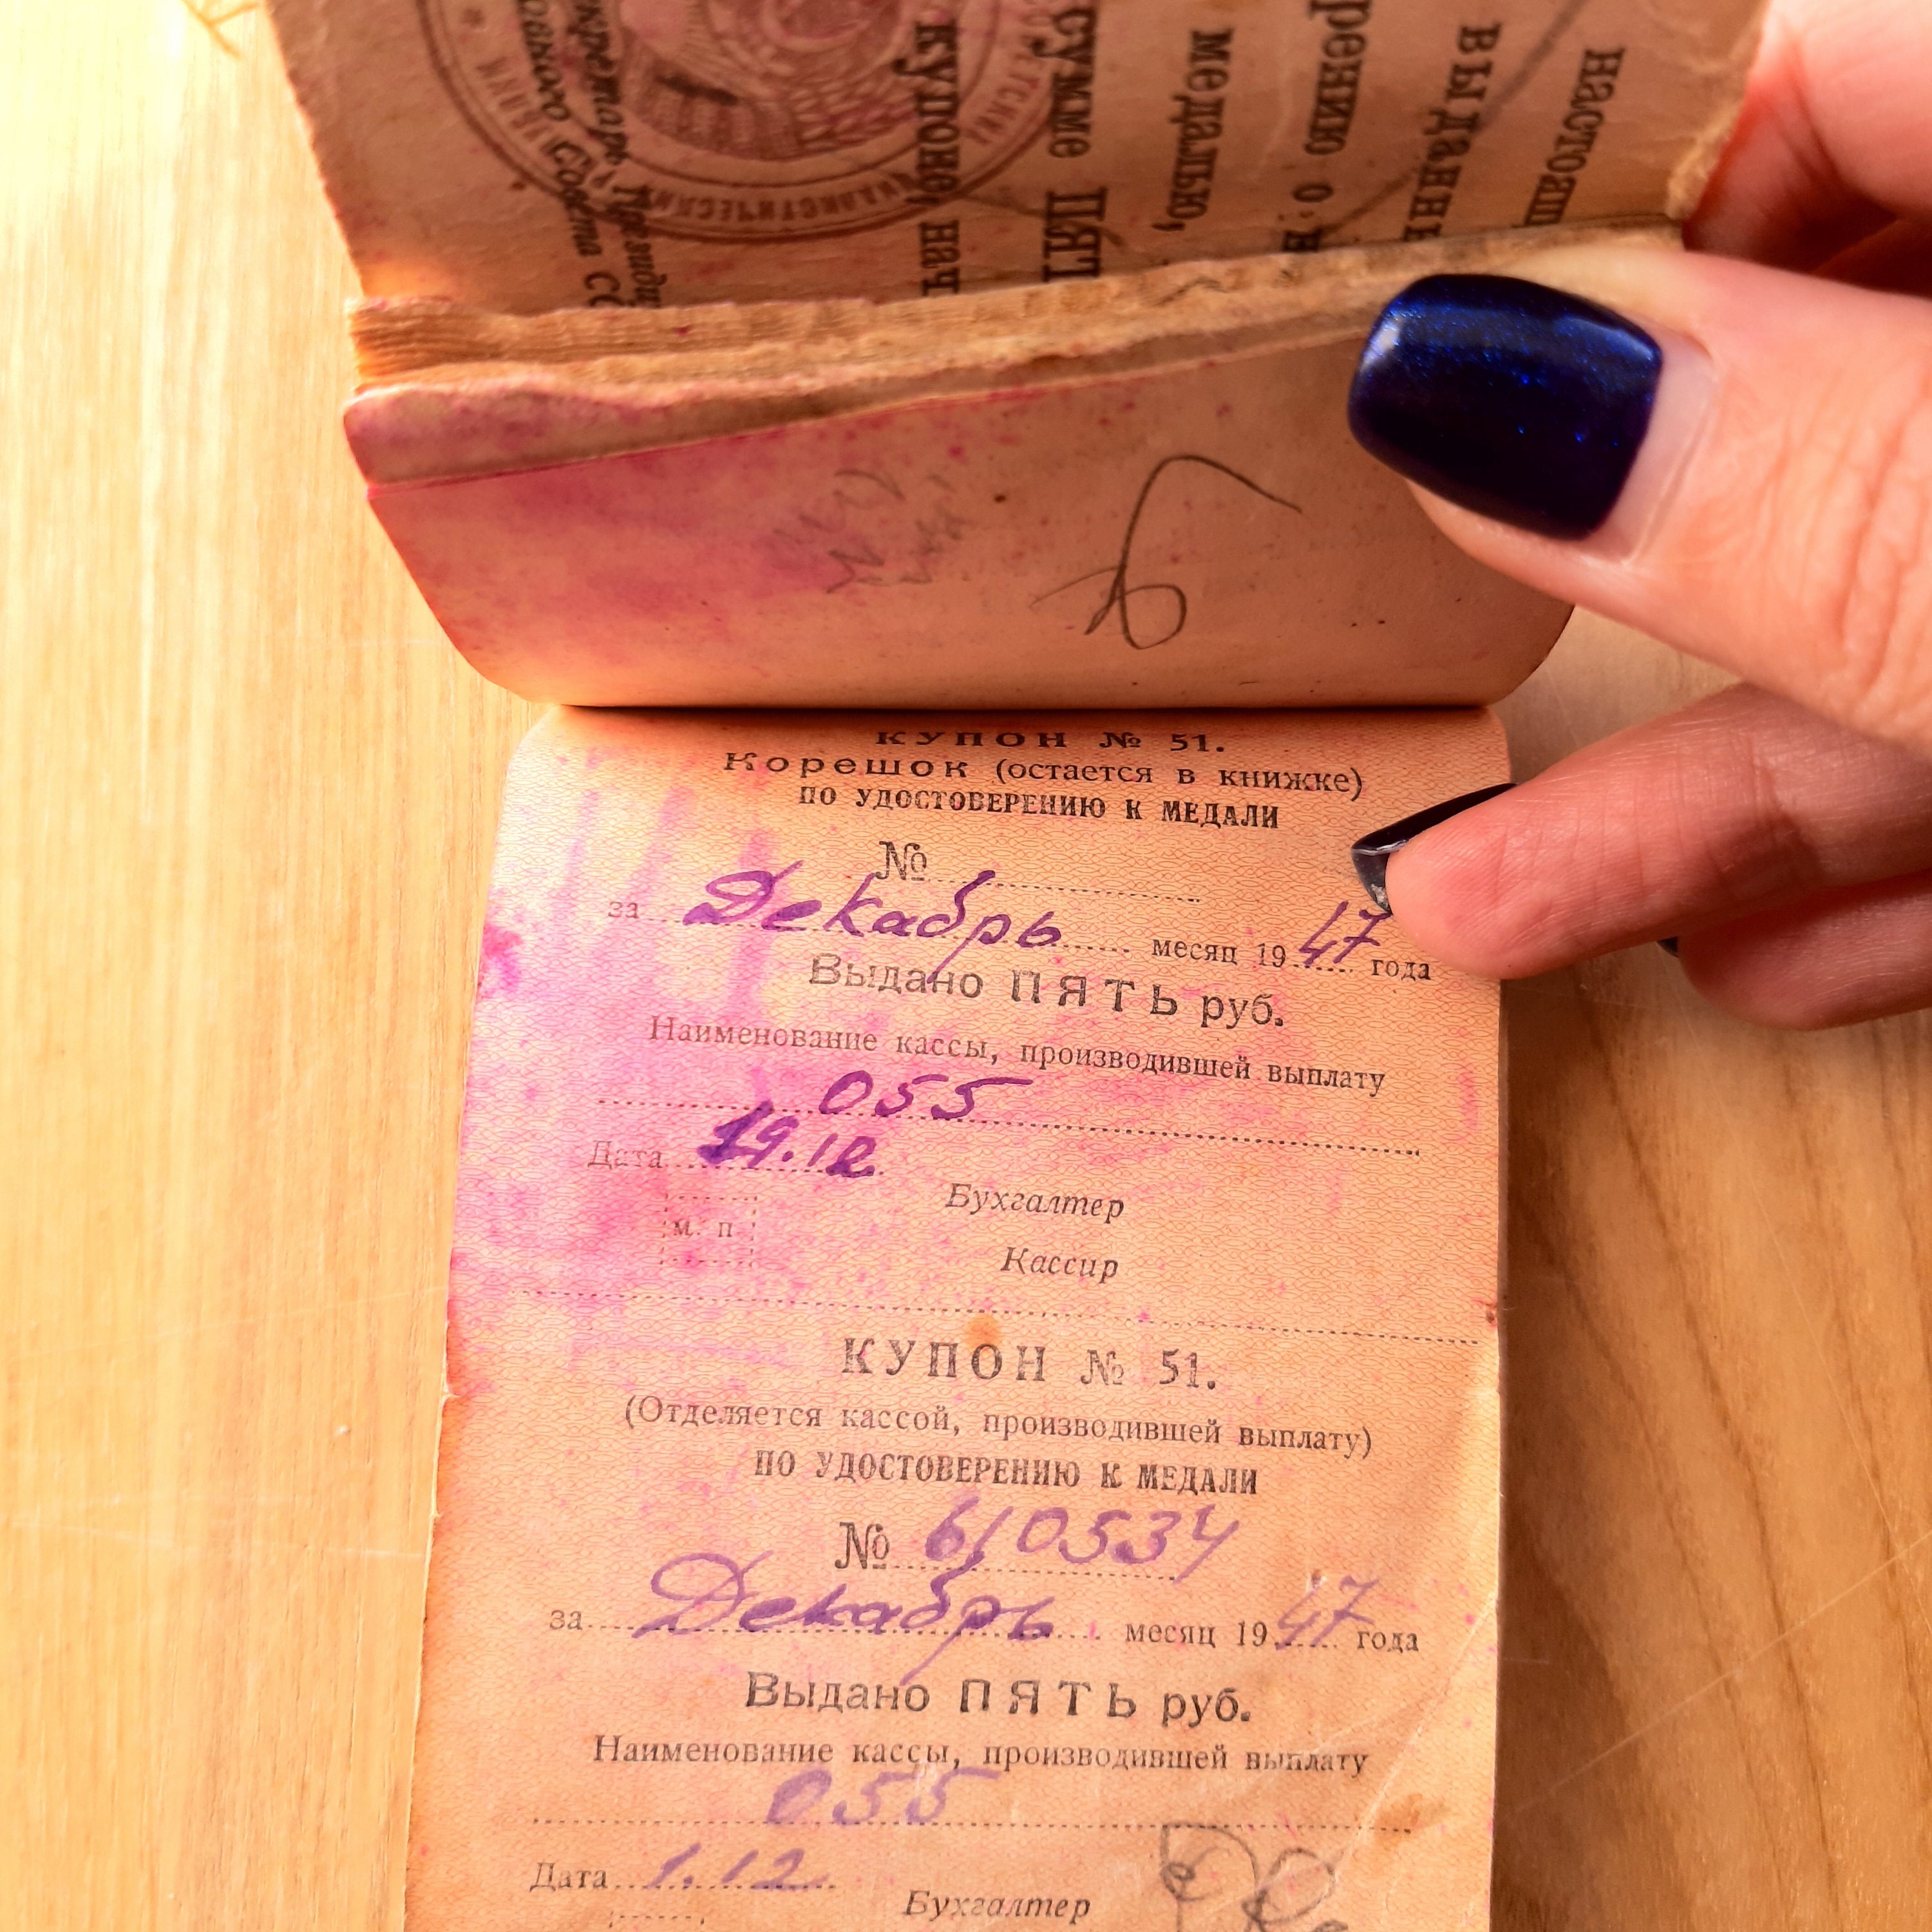 настоящ
выданн
рению о н
медалью,
сумме ПЯТ
купоне, нач
кретарь Президи
овного Совета СС
КУПОН № 51.
Корешок (остается в книжке)
ПО УДОСТОВЕРЕНИЮ К МЕДАЛИ
№
за Декабрь месяц 1947 года
Выдано ПЯТЬ руб.
Наименование кассы, производившей выплату
055
Дата 19.12
Бухгалтер
м. п
Кассир
КУПОН № 51.
(Отделяется кассой, производившей выплату)
ПО УДОСТОВЕРЕНИЮ К МЕДАЛИ
№ 610534
за Декабрь месяц 1947 года
Выдано ПЯТЬ руб.
Наименование кассы, производившей выплату
055
Дата 1.12
Бухгалтер